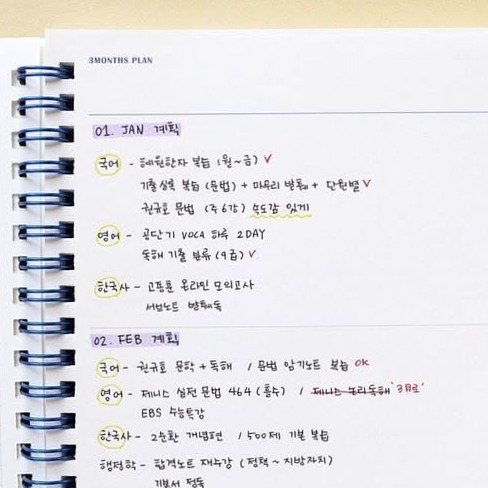 3MONTHS PLAN
01. JAN 계획
국어 - 혜원한자 복습 (월~금) ✓
기출실록 복습 (문법) + 마무리 발췌 + 단원별 ✓
권규호 문법 (주 6강) 속도감 있게
영어 - 공단기 VOCA 하루 2DAY
독해 기출 분류 (9급) ✓
한국사 - 고종훈 온라인 모의고사
서브노트 발췌독
02. FEB 계획
국어 - 권규호 문학 + 독해 / 문법 암기노트 복습 OK
영어 - 제니스 실전 문법 464 (홀수) / 제니스 논리독해 '3月로'
EBS 수능특강
한국사 - 2순환 개념편 / 500제 기본 복습
행정학 - 합격노트 재수강 (정책 ~ 지방자치)
기본서 정독